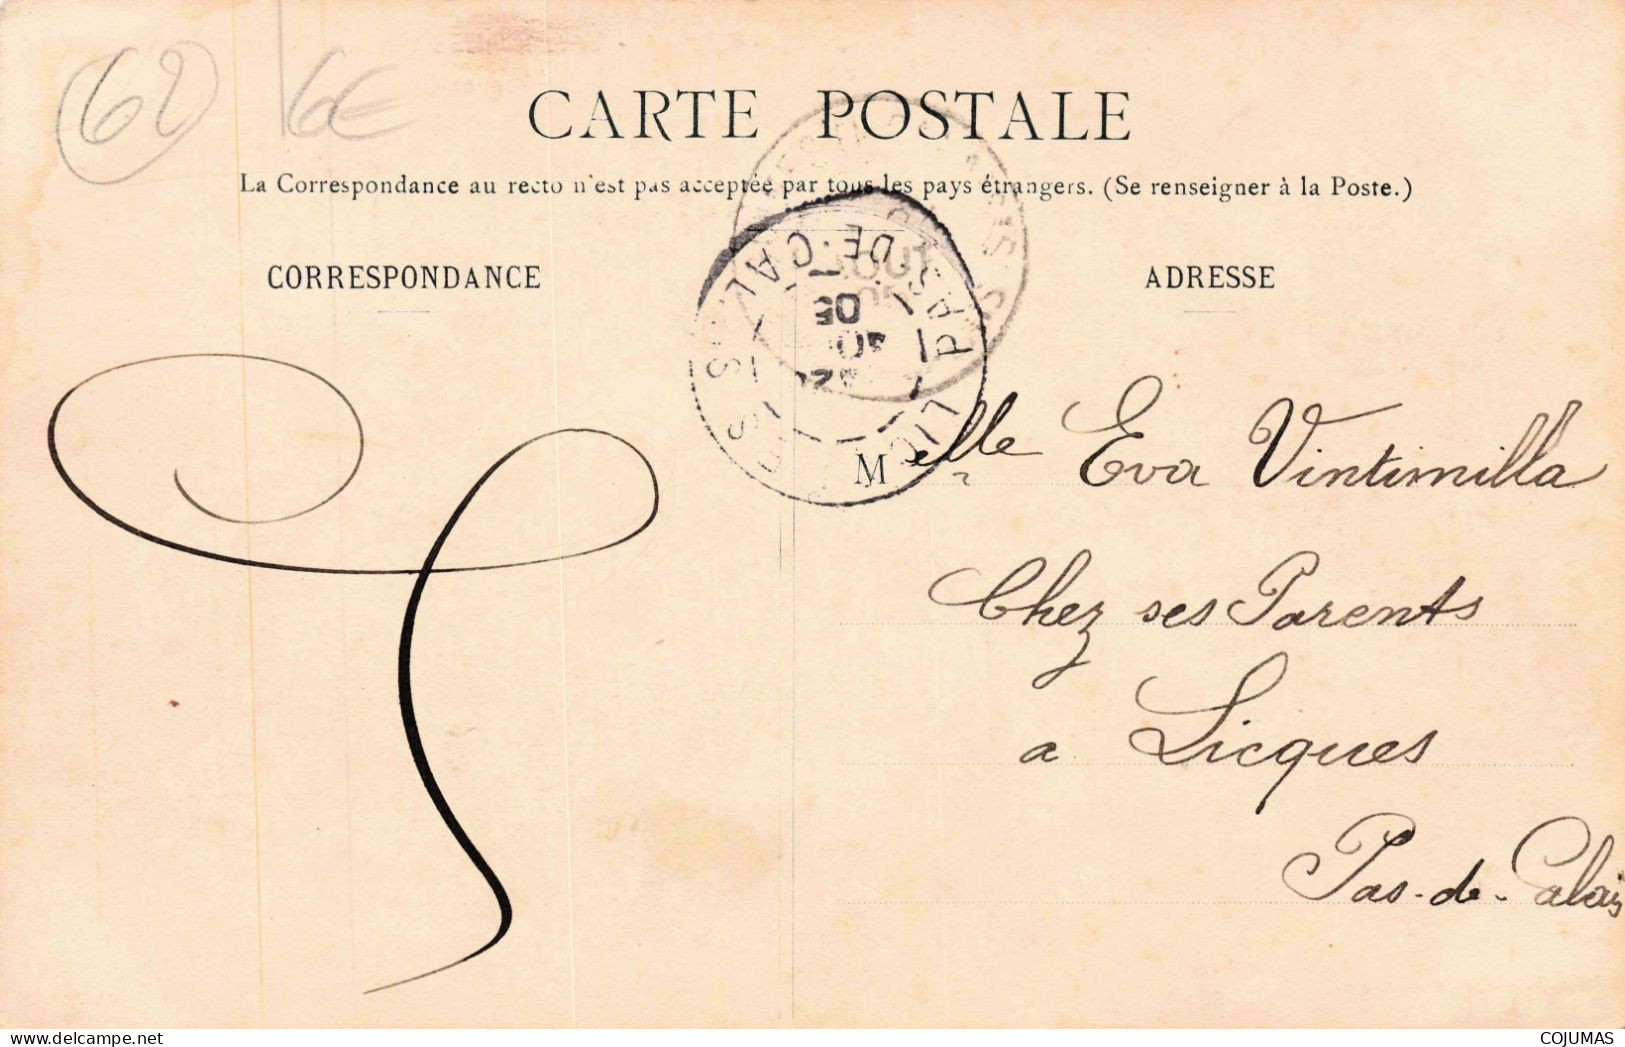 62 6€
CARTE POSTALE
La Correspondance au recto n'est pas acceptée par tous les pays étrangers. (Se renseigner à la Poste.)
CORRESPONDANCE
ADRESSE
PAS-DE-CALAIS
05
Melle Eva Vintimilla
Chez ses Parents
a Licques
Pas-de-Calais
COJUMAS